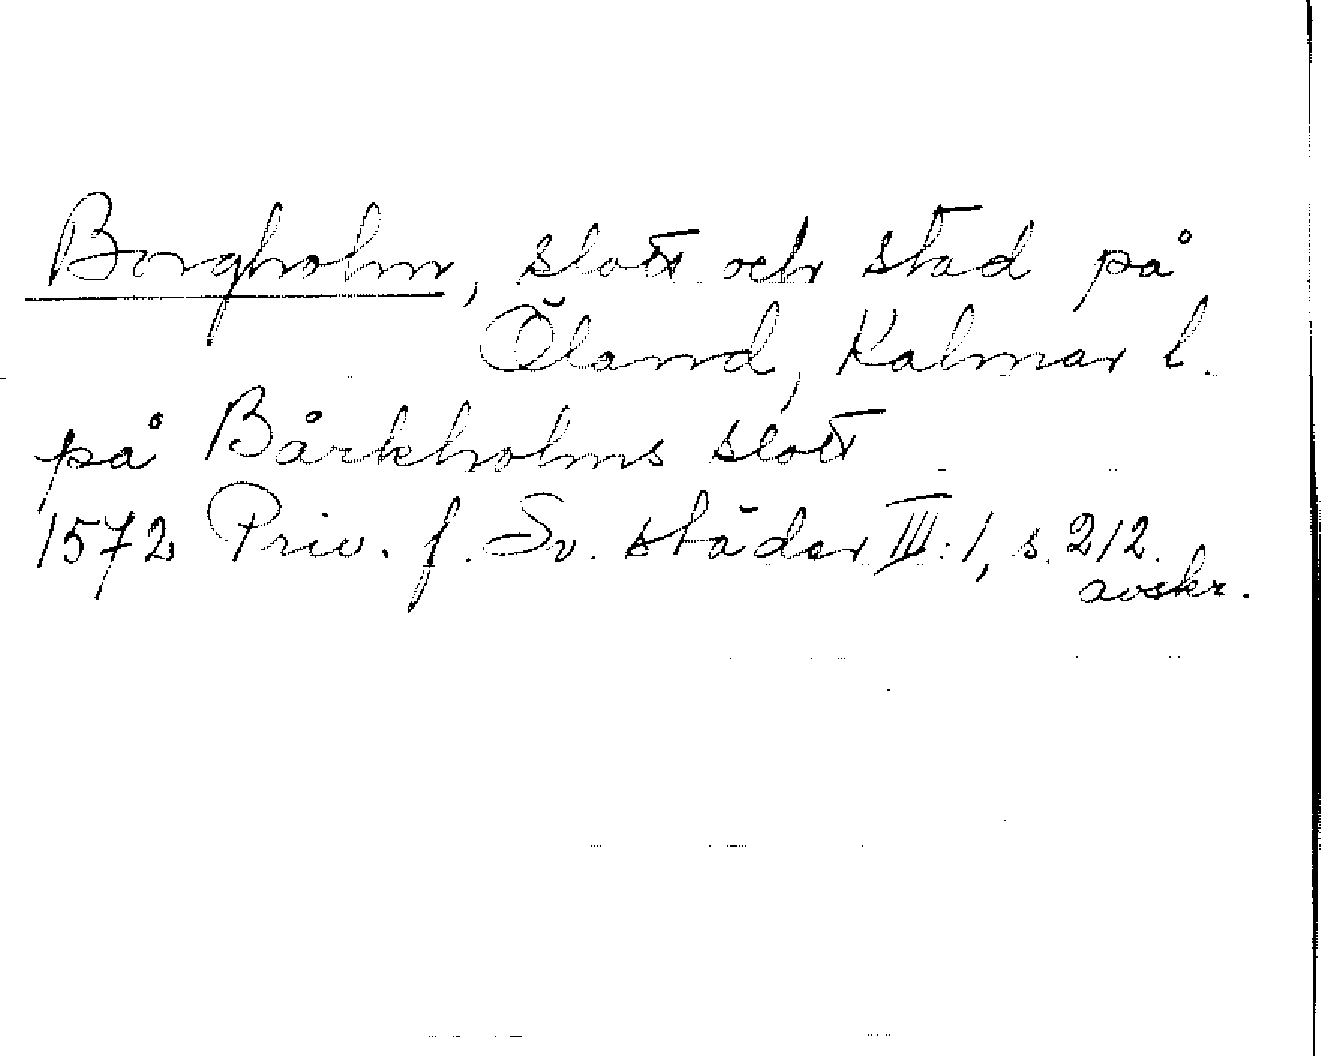 Borgholm, slott och stad på
Öland, Kalmar l.
på Bårkholms slott
1572 Priv. f. Sv. städer III:1, s. 212.
avskr.